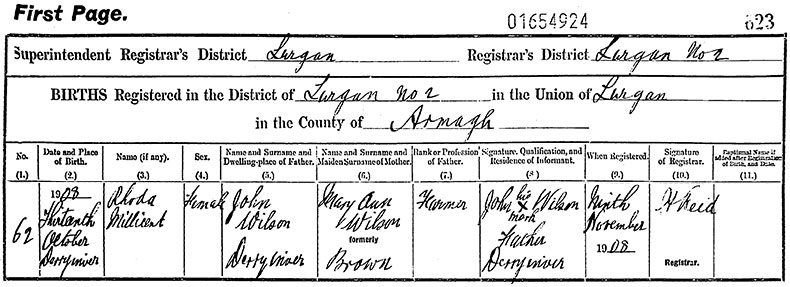 First Page.
01654924
623
Superintendent Registrar's District Lurgan Registrar's District Lurgan No 2
BIRTHS Registered in the District of Lurgan No 2 in the Union of Lurgan
in the County of Armagh
No. Date and Place of Birth. Name (if any). Sex. Name and Surname and Dwelling-place of Father. Name and Surname and Maiden Surname of Mother. Rank or Profession of Father. Signature, Qualification, and Residence of Informant. When Registered. Signature of Registrar. Baptismal Name if added after Registration of Birth, and Date.
(1.) (2.) (3.) (4.) (5.) (6.) (7.) (8.) (9.) (10.) (11.)
62
1908
Thirteenth
October
Derryinver
Rhoda
Millicent
Female
John
Wilson
Derryinver
Mary Ann
Wilson
formerly
Brown
Farmer
John his x mark Wilson
Father
Derryinver
Ninth
November
1908
H Reid
Registrar.